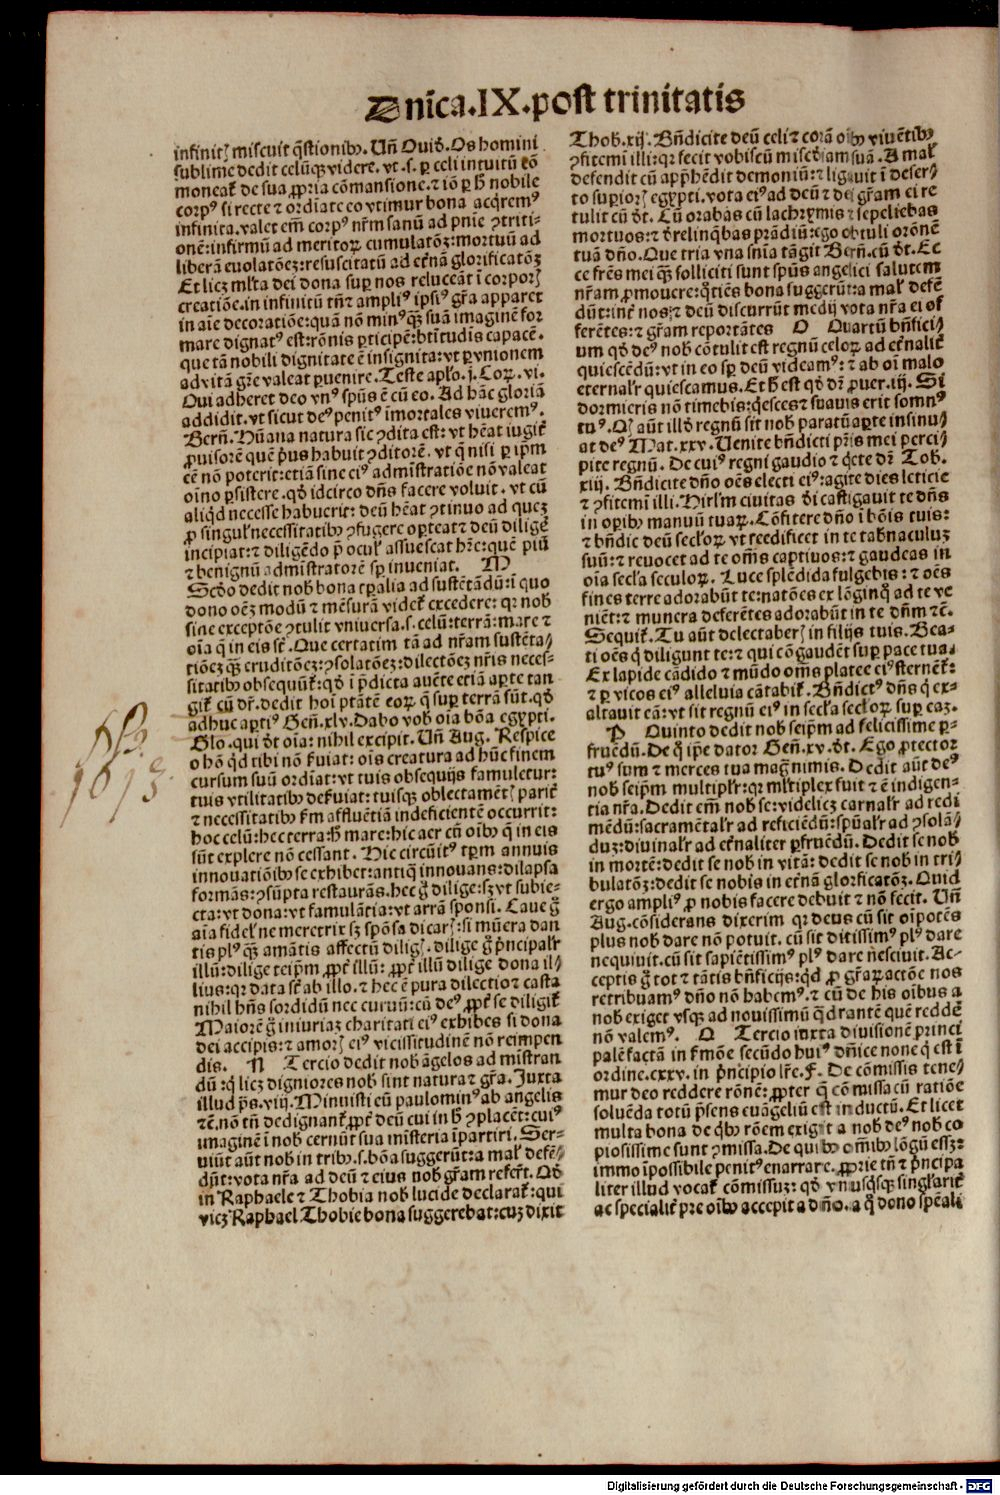 Dnīca.IX.post trinitatis
infinitꝭ miscuit q̄stionibꝰ. Uñ Ouid̉. Os homini
sublime dedit celūqꝫ videre. vt .s. ꝑ celi intuitū cō
moneat̉ de sua ꝓpria cōmansione. ⁊ iō ꝑ h̄ nobile
corpꝰ si recte ⁊ ordīate eo vtimur bona acq̄remꝰ
infinita. valet em̄ corpꝰ nr̄m sanū ad pnīe ꝯtriti-
onē: infirmū ad meritoꝝ cumulatōꝫ: mortuū ad
liberā euolatōeꝫ: resuscitatū ad et̉nā glorificatōꝫ
Et licꝫ ml̄ta dei dona suꝑ nos reluceāt ī corporꝭ
creatiōe. in infinitū tn̄ ampliꝰ ipsiꝰ gr̄a apparet
in aīe decoratiōe: quā nō minꝰ qꝫ suā imaginē for
mare dignatꝰ est: rōnis ꝑticipē: bt̄itudīs capacē.
que tā nobili dignitate ē insignita: vt ꝑ vnionem
ad vitā gr̄e valeat ꝑuenire. Teste apl̄o .j. Coꝝ. vi.
Qui adheret deo vnꝰ spūs ē cū eo. Ad hāc gloriā
addidit. vt sicut deꝰ penitꝰ īmortales viueremꝰ.
Bern̄. Hūana natura sic ꝯdita est: vt hēat iugit̉
ꝓuisorē quē p̄us habuit ꝯditorē. vt q̄ nisi ꝑ ip̄m
eē nō poterit: etiā sine eiꝰ admīstratiōe nō valeat
oīno ꝑsistere. qd̉ idcirco dn̄s facere voluit. vt cū
aliqd̄ necesse habuerit: deū hēat ꝯtinuo ad queꝫ
ꝓ singul̄ necessitatibꝰ ꝯfugere oꝑteat ⁊ deū diligē
incipiat: ⁊ diligēdo p̄ ocul̄ assuescat hr̄e: quē piū
⁊ benignū admīstratorē sꝑ inueniat. M
Scd̄o dedit nob̄ bona tꝑalia ad sustētādū: ī quo
dono oēꝫ modū ⁊ mēsurā videt̉ excedere: qꝛ nob̄
sine exceptōe ꝯtulit vniuersa .s. celū: terrā: mare ⁊
oīa q̄ in eis st̄. Que certatim tā ad nr̄am sustēta/
tiōeꝫ qꝫ eruditōeꝫ: ꝯsolatōeꝫ: dilectōeꝫ nr̄is neces-
sitatibꝰ obsequūt̉: qd̉ ī p̄dicta auēte etiā aꝑte tan
git̉ cū dr̄. dedit hoī ptātē eoꝝ q̄ suꝑ terrā sūt. qd̉
adhuc aꝑtiꝰ Gen̄. xlv. Dabo vob̄ oīa bōa egypti.
Glo. qui d̄t oīa: nihil excipit. Uñ Aug. Respice
o hō qd̄ tibi nō ẜuiat: oīs creatura ad hūc finem
cursum suū ordīat: vt tuis obsequijs famuletur:
tuis vtilitatibꝰ deẜuiat: tuisqꝫ oblectamētꝭ parit̉
⁊ necessitatibꝰ ẜm affluētiā indeficientē occurrit:
hoc celū: hec terra: h̄ mare: hic aer cū oībꝰ q̄ in eis
sūt explere nō cessant. Hic circūitꝰ tꝑm annuis
innouatiōibꝰ se exhibet: antiq̄ innouans: dilapsa
formās: ꝯsūpta restaurās. hec g̊ dilige: sꝫ vt subie-
cta: vt dona: vt famulātia: vt arrā sponsi. Caue g̊
aīa fidel̄ ne meretrix sꝫ spōsa dicarꝭ: si mūera dan
tis plꝰ qꝫ amātis affectū diligꝭ. dilige g̊ p̄ncipalr̄
illū: dilige teip̄m ꝓpt̉ illū: ꝓpt̉ illū dilige dona il/
lius: qꝛ data st̄ ab illo. ⁊ hec ē pura dilectio ⁊ casta
nihil hn̄s sordidū nec curuū: cū deꝰ ꝓpt̉ se diligit̉
Maiorē g̊ iniuriaꝫ charitati eiꝰ exhibes si dona
dei accipis: ⁊ amorꝭ eiꝰ vicissitudinē nō reimpen
dis. N Tercio dedit nob̄ āgelos ad mīstran
dū: q̇ licꝫ digniores nob̄ sint natura ⁊ gr̄a. Juxta
illud p̄s. viij. Minuisti eū paulominꝰ ab angelis
⁊c̄. nō tn̄ dedignant̉ ꝓpt̉ deū cui in h̄ ꝯplacēt: cuiꝰ
imaginē ī nob̄ cernūt sua mīsteria īpartiri. Ser-
uiūt aūt nob̄ in tribꝰ .s. bōa suggerūt: a mal̄ defē/
dūt: vota nr̄a ad deū ⁊ eius nob̄ gr̄am referūt. Qd̉
in Raphaele ⁊ Thobia nob̄ lucide declarat̉: qui
vicꝫ Raphael Thobie bona suggerebat: cuꝫ dixit
Thob. xij. Bn̄dicite deū celi ⁊ corā oībꝰ viuētibꝰ
ꝯfitemī illi: qꝛ fecit vobiscū miscd̄iam suā. A mal̄
defendit cū app̄hēdit demoniū: ⁊ ligauit ī deser/
to suꝑiorꝭ egypti. vota eiꝰ ad deū ⁊ dei gr̄am ei re
tulit cū d̄t. Cū orabas cū lachrymis ⁊ sepeliebas
mortuos: ⁊ d̉relinq̄bas prādiū: ego obtuli orōnē
tuā dn̄o. Que tria vna sn̄ia tāgit Bern̄. cū d̄t. Ec
ce frēs mei qꝫ solliciti sunt spūs angelici salutem
nr̄am ꝓmouere: q̇tiēs bona suggerūt: a mal̄ defē
dūt: int̉ nos ⁊ deū discurrūt medij vota nr̄a ei of
ferētes: ⁊ gr̄am reportātes O Quartū bn̄fici/
um qd̉ deꝰ nob̄ cōtulit est regnū celoꝝ ad et̉nalit̉
quiescēdū: vt in eo sꝑ deū videamꝰ: ⁊ ab oī malo
eternalr̄ quiescamus. Et h̄ est qd̉ dr̄ ꝓuer. iij. Si
dormieris nō timebis: q̇esces ⁊ suauis erit somnꝰ
tuꝰ. Qꝭ aūt illd̉ regnū sit nob̄ paratū aꝑte insinu/
at deꝰ Mat. xxv. Uenite bn̄dicti pr̄is mei perci/
pite regnū. De cuiꝰ regni gaudio ⁊ q̇ete dr̄ Tob.
xiij. Bn̄dicite dn̄o oēs electi eiꝰ: agite dies leticie
⁊ ꝯfitemī illi. Hirlm̄ ciuitas d̉i castigauit te dn̄s
in oꝑibꝰ manuū tuaꝝ. Cōfitere dn̄o ī bōis tuis:
⁊ bn̄dic deū secl̄oꝝ vt reedificet in te tab̄naculuꝫ
suū: ⁊ reuocet ad te om̄s captiuos: ⁊ gaudeas in
oīa secl̄a seculoꝝ. Luce splēdida fulgebis: ⁊ oēs
fines terre adorabūt te: natōes ex lōginq̊ ad te ve
niēt: ⁊ munera deferētes adorabūt in te dn̄m ⁊c̄.
Sequit̉. Tu aūt delectaberꝭ in filijs tuis. Bea-
ti oēs q̇ diligunt te: ⁊ qui cōgaudēt suꝑ pace tua.
Ex lapide cādido ⁊ mūdo om̄s platee eiꝰ sternēt̉:
⁊ ꝑ vicos eiꝰ alleluia cātabit̉. Bn̄dictꝰ dn̄s q̇ ex-
altauit eā: vt sit regnū eiꝰ in secl̄a secl̄oꝝ suꝑ eaꝫ.
P Quinto dedit nob̄ seip̄m ad felicissime ꝑ-
fruēdū. De q̊ ip̄e dator Gen̄. xv. d̄t. Ego ꝓtector
tuꝰ sum ⁊ merces tua magna nimis. Dedit aūt deꝰ
nob̄ seip̄m multiplr̄: qꝛ ml̄tiplex fuit ⁊ ē indigen-
tia nr̄a. Dedit em̄ nob̄ se: videlicꝫ carnalr̄ ad redi
mēdū: sacramētalr̄ ad reficiēdū: spūalr̄ ad ꝯsolā/
duꝫ: diuinalr̄ ad et̉naliter ꝑfruēdū. Dedit se nob̄
in mortē: dedit se nob̄ in vitā: dedit se nob̄ in tri/
bulatōꝫ: dedit se nobis in et̉nā glorificatōꝫ. Quid
ergo ampliꝰ ꝓ nobis facere debuit ⁊ nō fecit. Uñ
Aug. cōsiderans dixerim qꝛ deus cū sit oīpotēs
plus nob̄ dare nō potuit. cū sit ditissimꝰ plꝰ dare
nequiuit. cū sit sapiētissimꝰ plꝰ dare nesciuit. Ac-
ceptis g̊ tot ⁊ tātis bn̄ficijs: qd̄ ꝓ gr̄aꝝ actōe nos
retribuamꝰ dn̄o nō habemꝰ. ⁊ cū de his oībus a
nob̄ exiget vsqꝫ ad nouissimū q̄drantē que reddē
nō valemꝰ. Q Tercio iuxta diuisionē princi
palē factā in ẜmōe secūdo huiꝰ dn̄ice none q̇ est ī
ordine. cxxv. in p̄ncipio lr̄e. F. De cōmissis tene/
mur deo reddere rōnē: ꝓpter q̄ cōmissa cū ratiōe
soluēda totū p̄sens euāgeliū est inductū. Et licet
multa bona de q̇bꝰ rōem exigit a nob̄ deꝰ nob̄ co
piosissime sunt ꝯmissa. De quibꝰ om̄ibꝰ lōgū essꝫ:
immo īpossibile penitꝰ enarrare. ꝓprie tn̄ ⁊ p̄ncipa
liter illud vocat̉ cōmissuꝫ: qd̉ vnusq̇sqꝫ singl̄arit̉
ac specialit̉ pre oībꝰ accepit a dn̄o. a q̊ dono spēali
1813.
Digitalisierung gefördert durch die Deutsche Forschungsgemeinschaft - DFG